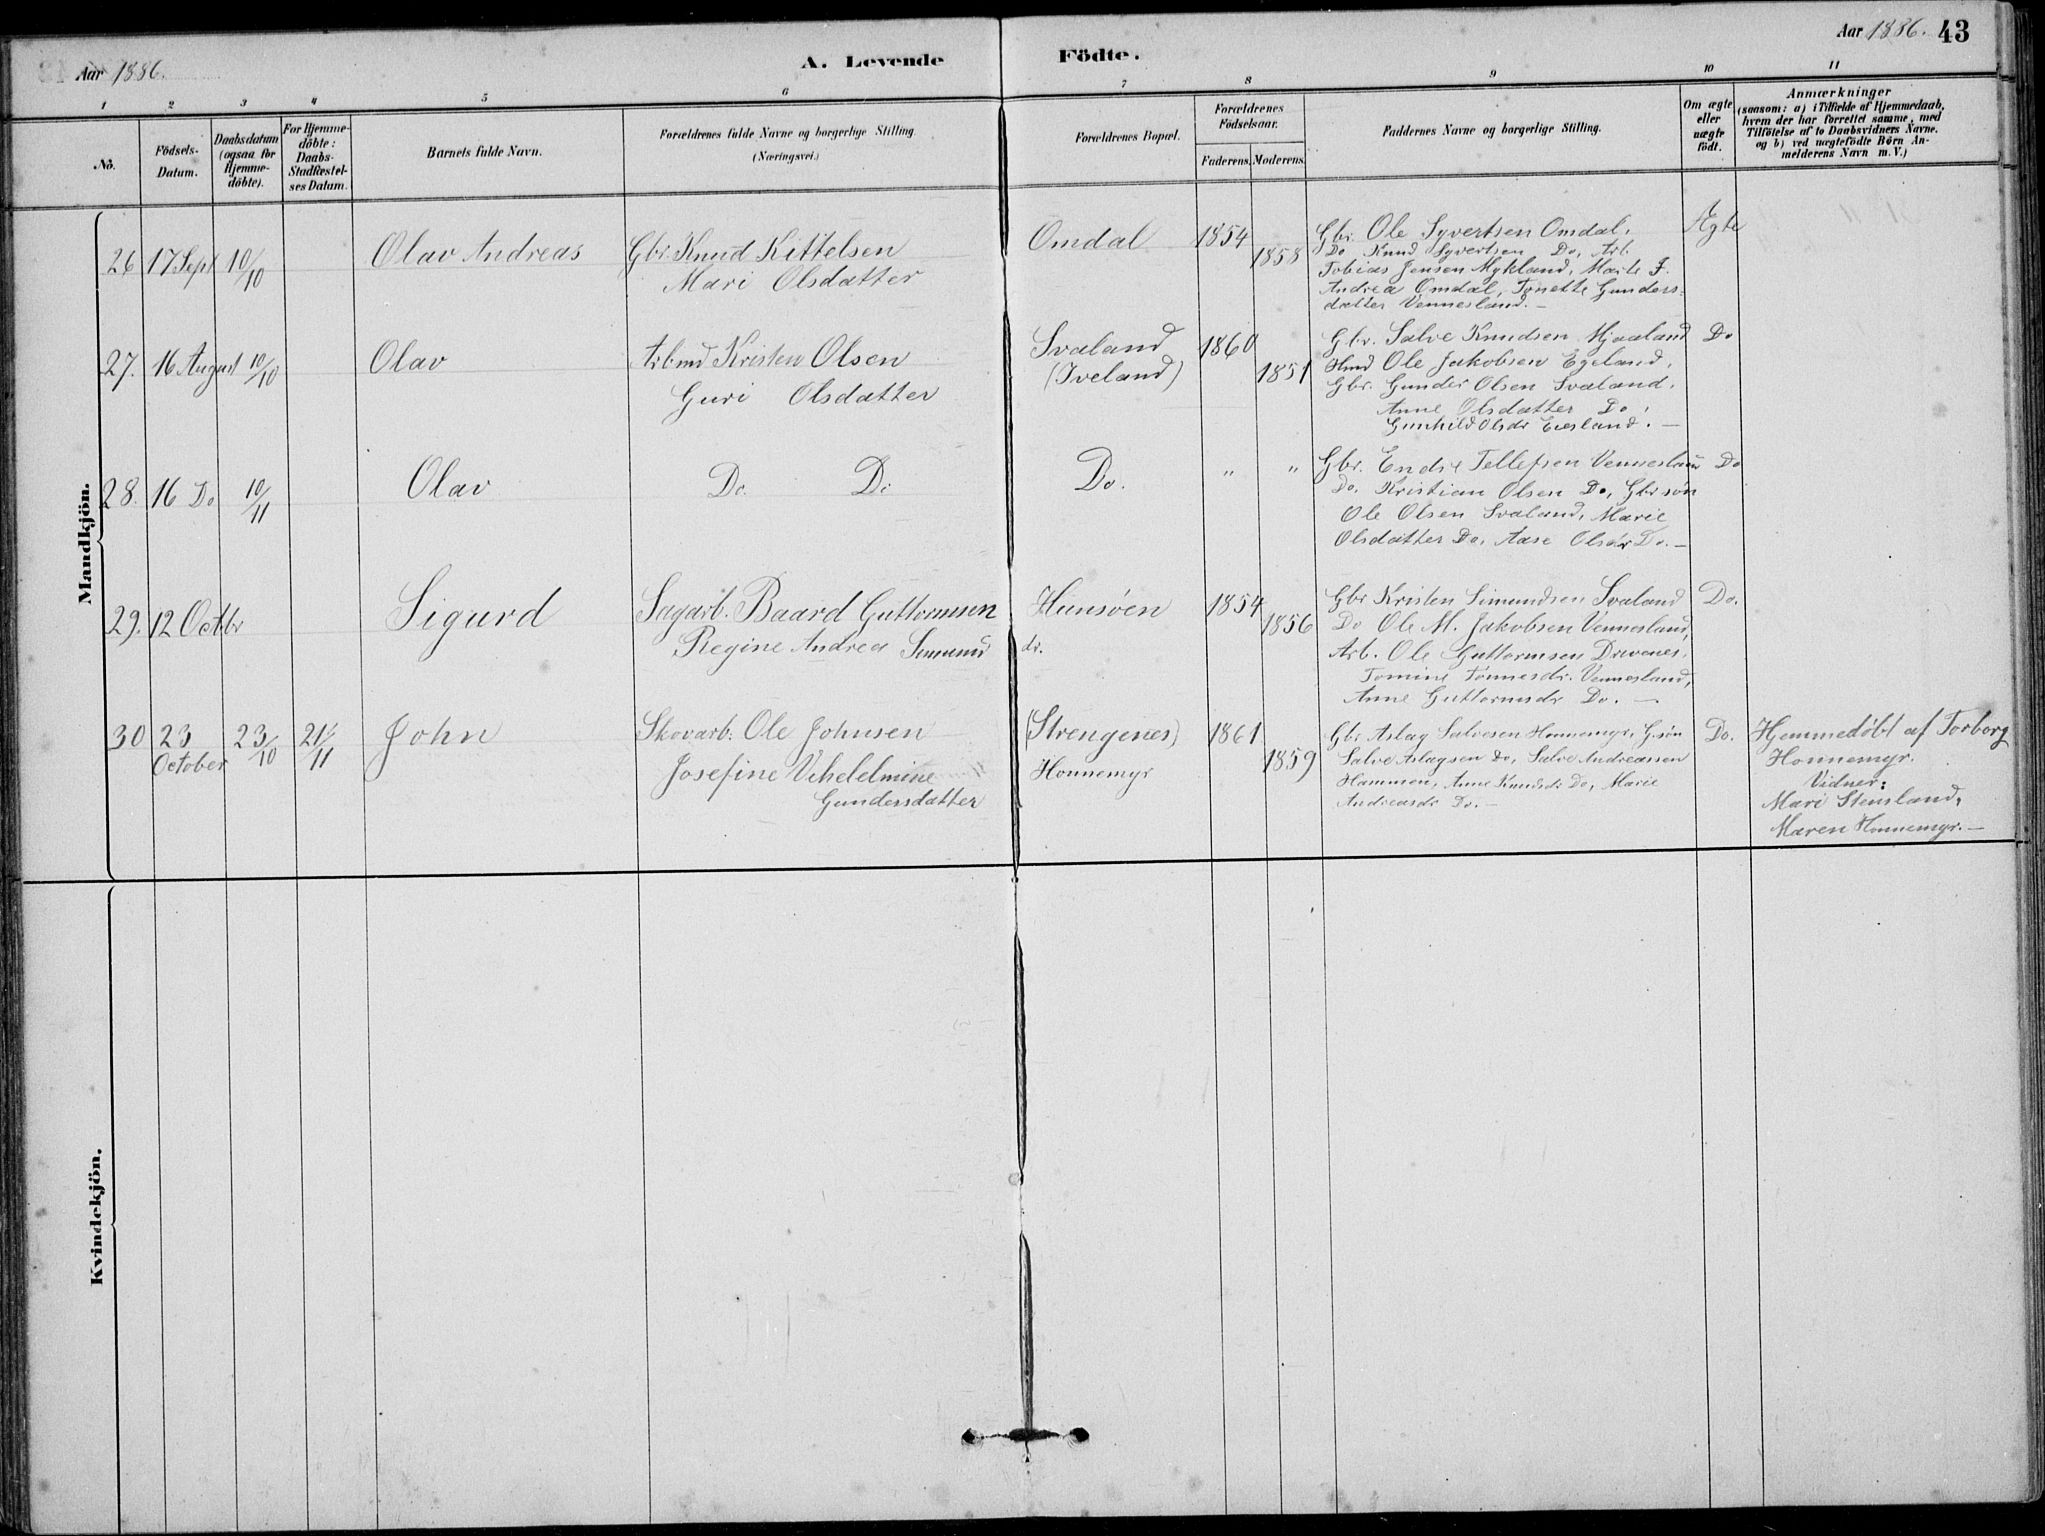 Aar 1886.
A. Levende Födte.
Aar 1886. 43
1 2 3 4 5 6 7 8 9 10 11
No.
Födsels-
Datum.
Daabsdatum
(ogsaa for
Hjemme-
döbte).
For Hjemme-
döbte:
Daabs-
Stadfæstel-
ses Datum.
Barnets fulde Navn.
Forældrenes fulde Navne og borgerlige Stilling.
(Næringsvei.)
Forældrenes Bopæl.
Forældrenes
Födselsaar.
Faderens. Moderens.
Faddernes Navne og borgerlige Stilling.
Om ægte
eller
uægte
födt.
Anmærkninger
(saasom: a) i Tilfælde af Hjemmedaab,
hvem der har forrettet samme, med
Tilföielse af to Daabsvidners Navne.
og b) ved uægtefödte Börn An-
melderens Navn m. V.)
Mandkjön.
26 17 Sept 10/10 Olav Andreas
Gbr. Knud Kittelsen
Mari Olsdatter
Omdal 1854 1858
Gbr. Ole Syvertsen Omdal.
Do Knud Syvertsen Do, Arb.
Tobias Jensen Mykland, Marte J.
Andrea Omdal, Tonette Gunders-
datter Vennesland. –
Ægte
27. 16 August 10/10 Olav
Arbmd Kristen Olsen
Guri Olsdatter
Svaland
(Iveland)
1860 1851
Gbr. Salve Knudsen Mjaaland
Hmd Ole Jakobsen Egeland,
Gbr. Gunder Olsen Svaland,
Anne Olsdatter Do,
Gunhild Olsdr Eieland. –
Do
28. 16 Do 10/11 Olav
Do. Do
Do.
" "
Gbr. Endre Tellefsen Vennesland
Do. Kristian Olsen Do, Gbrsøn
Ole Olsen Svaland, Marie
Olsdatter Do, Aase Olsdr Do. –
Do
29. 12 Octbr Sigurd
Sagarb. Baard Guttormsen
Regine Andrea Simunds dr.
Hunsøen
1854 1856
Gbr Kristen Simundsen Svaland
Do Ole M. Jakobsen Vennesland,
Arb. Ole Guttormsen Drivenes,
Tomine Tønnesdr. Vennesland,
Anne Guttormsdr Do. –
Do.
30 23 October 23/10 21/11 John
Skovarb: Ole Johnsen
Josefine Vihelelmine
Gundersdatter
(Strengenes)
Honnemyr
1861 1859
Gbr Aslag Salvesen Honnemyr, G.søn
Salve Aslagsen Do, Salve Andreassen
Hammen, Anne Knudsdr Do, Marie
Andreasdr Do. –
Do.
Hjemmedøbt af Torborg
Honnemyr.
Vidner:
Mari Stensland,
Maren Honnemyr. –
Kvindekjön.